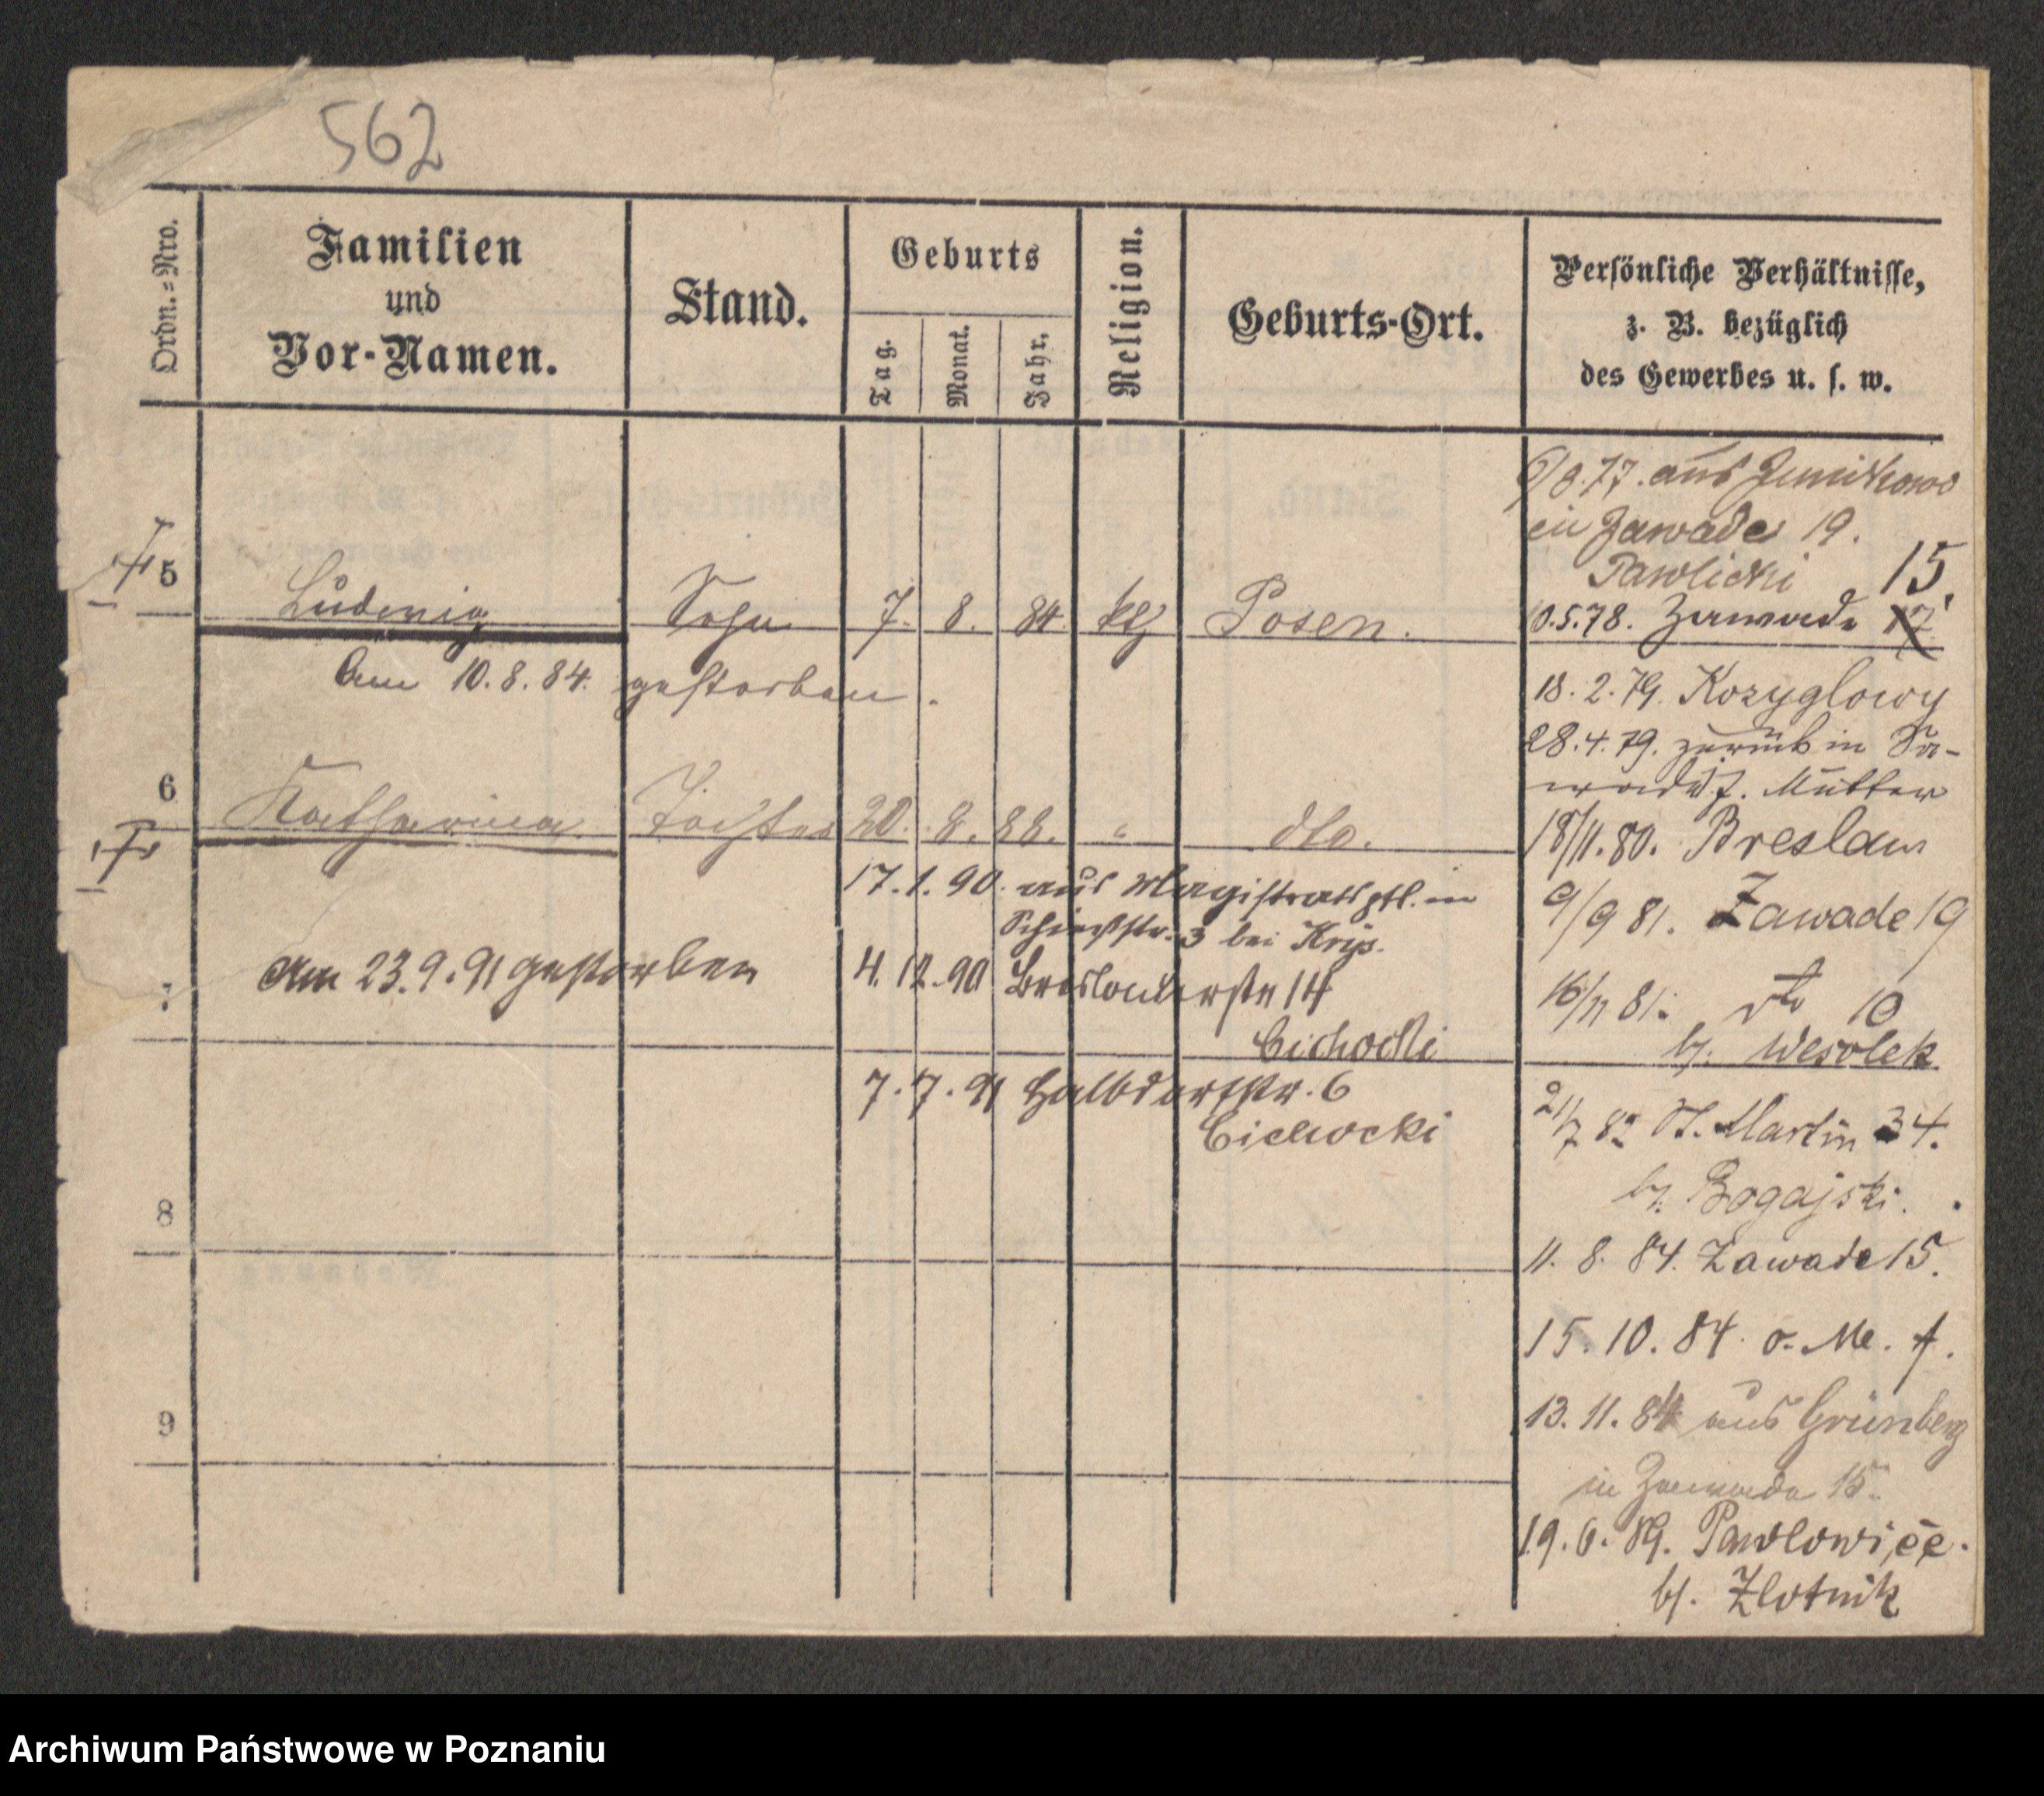 562
Ordn.-Nro.
Familien
und
Vor-Namen.
Stand.
Geburts
Tag.
Monat.
Jahr.
Religion.
Geburts-Ort.
Persönliche Verhältnisse,
z. B. bezüglich
des Gewerbes u. s. w.
5
Ludwig Sohn 7. 8. 84. ktl Posen.
Am 10.8.84. gestorben.
6
Katharina Tochter 20. 8. 88. " dto.
17.1.90. aus Magistrats in
Schießstr. 3 bei
Am 23.9.91 gestorben
4.12.90 Breslauerstr 14
Cichocki
7
7.7.91 Halbdorfstr. 6
Cichocki
8
9
6/8.77. aus Junikowo
in Zawade 19.
Pawlicki 15.
10.5.78. Zawade 17
18.2.79. Kozyglowy
28.4.79. zurück in Za-
wade z. Mutter
18/11.80. Breslau
9/9 81. Zawade 19
16/11 81. dto 10
b. Wesolek
21/7 82 St. Martin 34.
b. Bogajski.
11. 8. 84. Zawade 15.
15.10.84. o. Me. f.
13.11.84 aus Grünberg
in Zawade 15.
19.6.89. Pawlowice.
b. Zlotnik
Archiwum Państwowe w Poznaniu